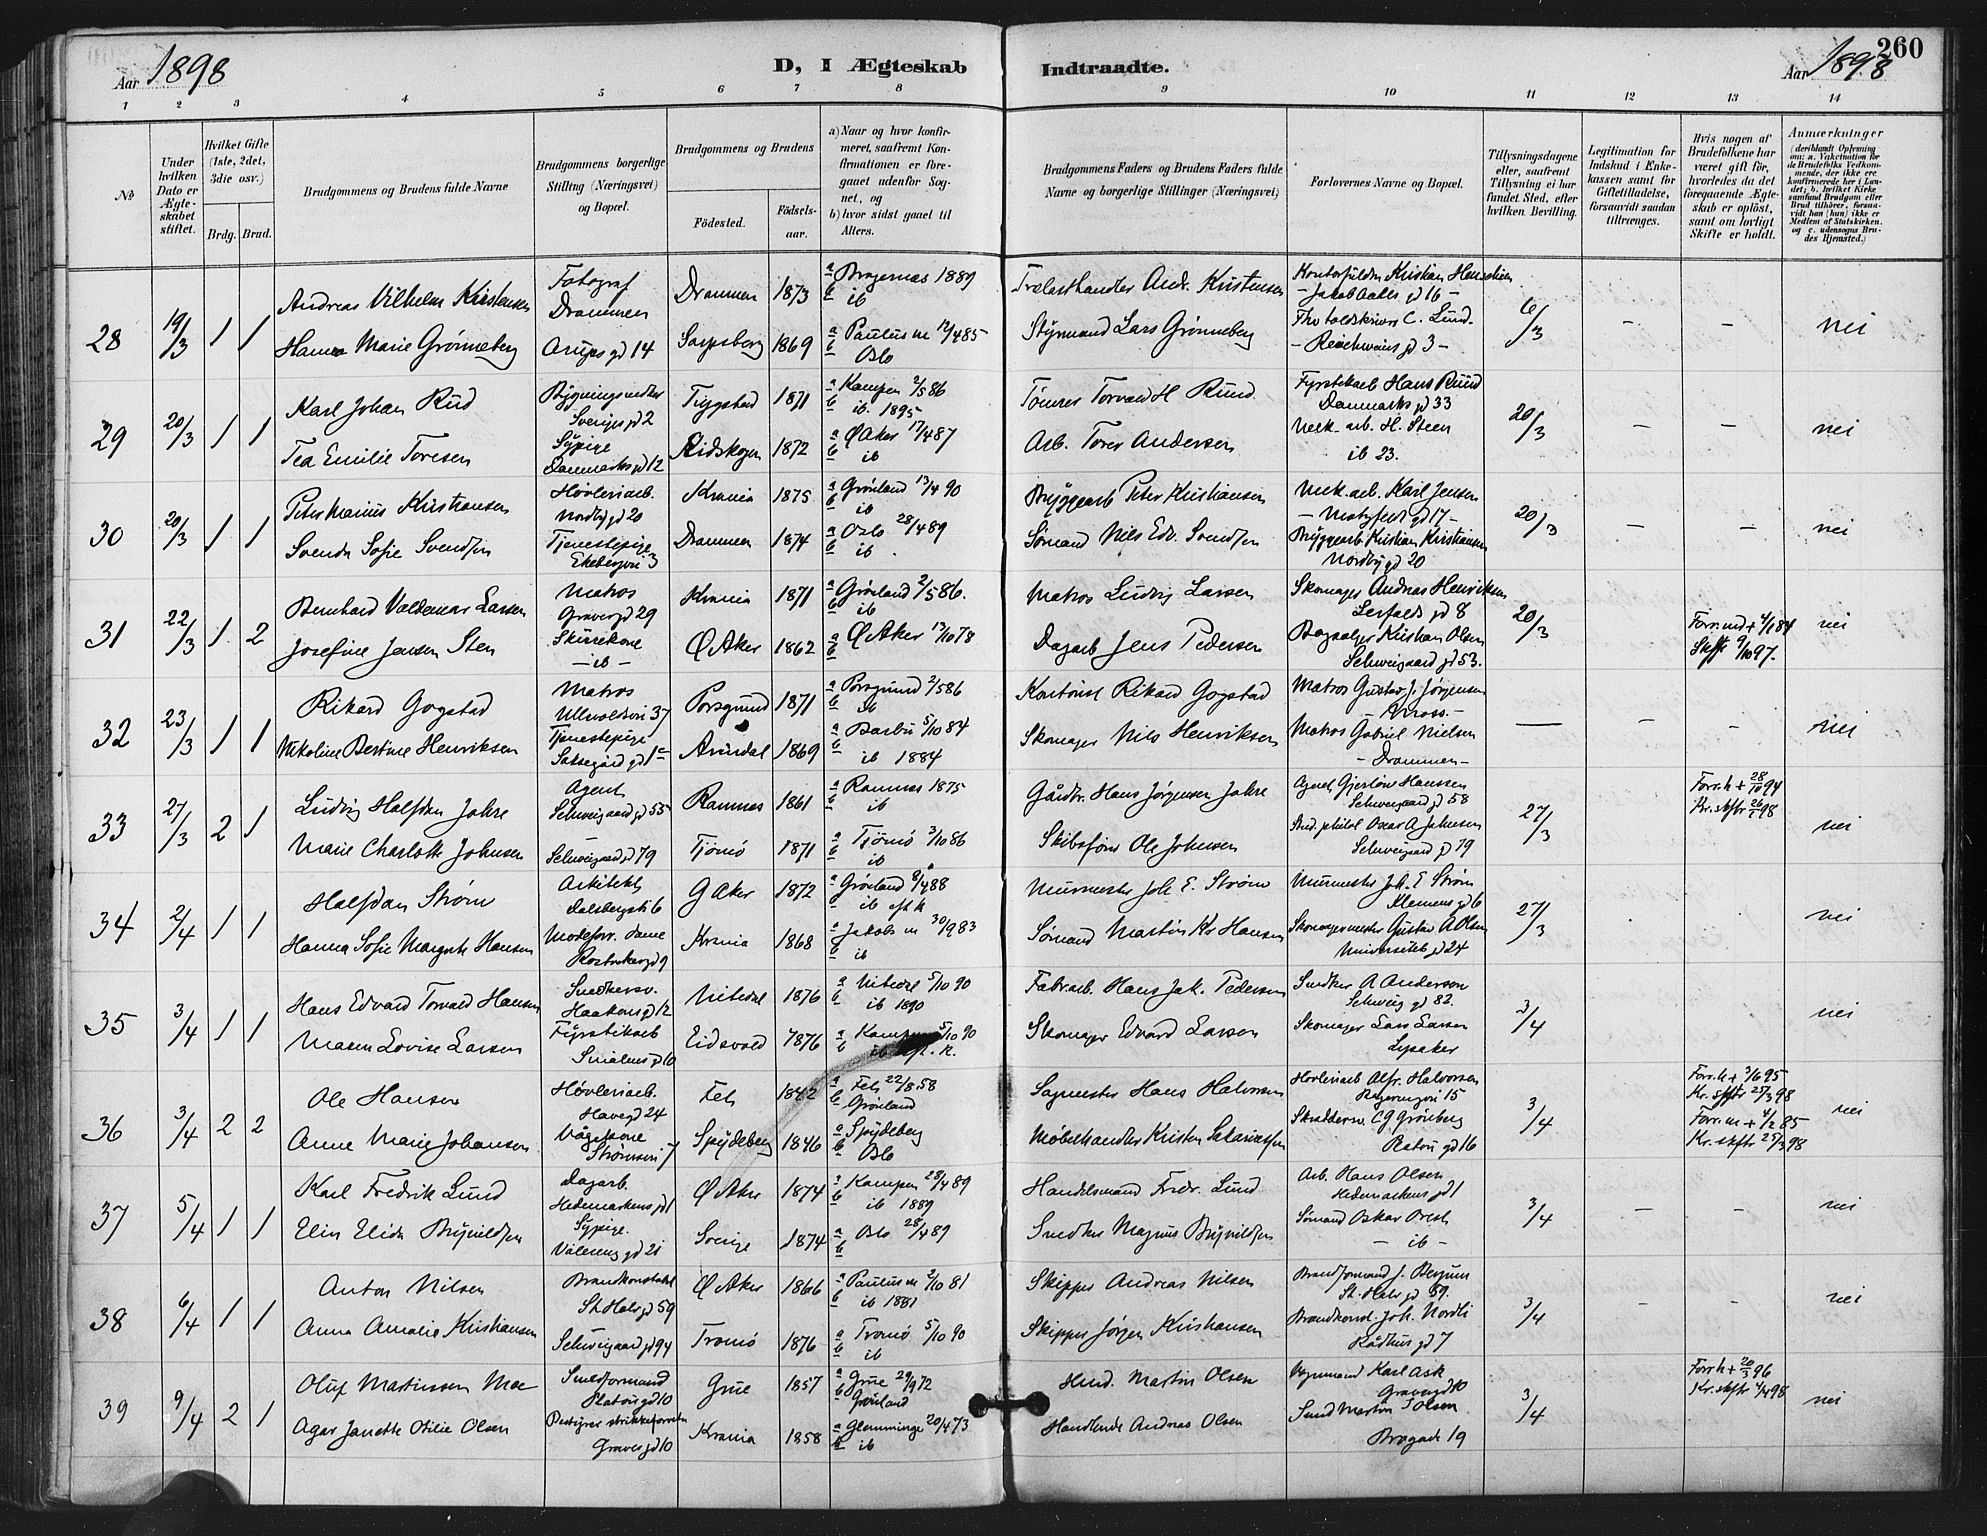 Aar 1898
D, I Ægteskab
Indtraadte.
Aar 1898
260
1 2 3 4 5 6 7 8 9 10 11 12 13 14
No
Under hvilken Dato er Ægteskabet stiftet.
Hvilket Gifte (1ste, 2det, 3die osv.)
Brdg. Brud.
Brudgommens og Brudens fulde Navne
Brudgommens borgerlige Stilling (Næringsvei) og Bopæl.
Brudgommens og Brudens
Fødested.
Fødselsaar.
a) Naar og hvor konfirmeret, saafremt Konfirmationen er foregaaet udenfor Sognet, og
b) hvor sidst gaaet til Alters.
Brudgommens Faders og Brudens Faders fulde Navne og borgerlige Stillinger (Næringsvei)
Forlovernes Navne og Bopæl.
Tillysningsdagene eller, saafremt Tillysning ei har fundet Sted, efter hvilken Bevilling.
Legitimation for Indskud i Enkekassen samt for Giftetilladelse, forsaavidt saadan tiltrænges.
Hvis nogen af Brudefolkene har været gift før, hvorledes da det foregaaende Ægteskab er opløst, samt om lovligt Skifte er holdt.
Anmærkninger (deriblandt Oplysning om: a. Vakcination for de Brudefolks Vedkommende, der ikke ere konfirmerede her i Landet; b. hvilket Kirkesamfund Brudgom eller Brud tilhører, forsaavidt han (hun) ikke er Medlem af Statskirken, og c. udensogns Brudes Hjemsted.)
28 19/3 1 1
Andreas Vilhelm Kristensen Fotograf Drammen Drammen 1873 a Bragernas 1889 b ib
Trælasthandler Andr. Kristensen Jakob Aalls gd 16
Hanna Marie Grønneberg Arups gd 14 Sarpsborg 1869 a Paulus m 12/4 85 b Oslo
Styrmand Lars Grønneberg C. Lund
6/3 - - nei
29 20/3 1 1
Karl Johan Rud Sveriges gd 2 Trygstad 1871 a Kampen 2/5 86 b ib. 1895
Tømrer Torvald H Ruud Fyrstikarb Hans Ruud Danmarks gd 33
Tea Emilie Toresen Sypige Danmarks gd 12 Eidskogen 1872 a Ø Aker 17/4 87 b ib
Arb. Tores Andersen Mek. arb. H. Steen ib 23.
20/3 - - nei
30 20/3 1 1
Peter Marius Kristiansen Høvleriarb. Nordby gd 20 Krania 1875 a Grønland 13/4 90 b ib
Bryggearb Peter Kristiansen Mek. arb. Karl Jensen gd 17
Svenda Sofie Svendsen Tjenestepige Ekebergvei 3 Drammen 1874 a Oslo 28/4 89 b ib
Sømand Nils Edv. Svendsen Bryggearb Kristian Kristiansen Nordby gd 20
20/3 - - nei
31 22/3 1 2
Bernhard Valdemar Larsen Matros Graver gd 29 Krania 1871 a Grønland 2/5 86. b ib
Matros Ludvig Larsen Skomager Andreas Henriksen gd 8
Josefine Jensen Sten - ib - Ø Aker 1862 a Ø Aker 13/10 78 b
Dagarb Jens Pedersen Kristian Olsen Schweigaard gd 53.
20/3 Skft 9/10 97. nei
32 23/3 1 1
Rikard Gogstad Matros Ullevoldsvei 37 Porsgrund 1871 a Porsgrund 2/5 86 b ib
Kontorist Rikard Gogstad Matros Gustav J. Jørgensen - Moss. -
Nikoline Bertine Henriksen Tjenestepige Arendal 1869 a Barbu 5/10 84 b ib 1884
Skomager Nils Henriksen Matros Gabriel Nielsen - Drammen -
— - - nei
33 27/3 2 1
Ludvig Halfdan Jahre Agent Schweigaard gd 55 Ramnes 1861 a Ramnes 1875 b ib
Gårdbr. Hans Jørgensen Jahre Agent Hanssen Schweigaard gd 58
Marie Charlotte Johnsen Schweigaard gd 79 Tjømø 1871 a Tjømø 3/10 86 b ib
Skibsfører Ole Johnsen Stud. philol Oscar A Johnsen Schweigaard gd 79
27/3 Forr. h + 28/10 94 Kr. skftr 26/1 98 nei
34 2/4 1 1
Halfdan Strøm Arkitekt Dalsbergsti 6 G Aker 1872 a Grønland 8/4 88 b ib
Murmester Joh E. Strøm Murmester Joh. E Strøm Klemens gd 6
Hanna Sofie Margrete Hansen Krania 1868 a Jakobs m 30/9 83 b ib
Sømand Martin Kr Hansen Skomagermester Gustav A Olsen Universitets gd 24
27/3 nei
35 3/4 1 1
Hans Edvard Torvald Hansen Snedkersv. Haakons gd 12 Nitedal 1876 a Nitedal 5/10 90 b ib 1890
Fabr. arb. Hans Jak. Pedersen Snedker A Anderson Schweig gd 82.
Maren Lovise Larsen Fyrstikarb Smålens gd 10 Eidsvold 1876 a Kampen 5/10 90 b ib
Skomager Edvard Larsen Skomager Lars Larsen Lysaker
3/4 nei
36 3/4 2 2
Ole Hansen Høvleriarb. Have gd 24 Fet 1842 a Fet 22/8 58 b Grønland
Sagmester Hans Halvorsen Høvleriarb Alfr. Halvorsen 15
Anne Marie Johansen Strømsvei 7 Spydeberg 1846 a Spydeberg b Oslo
Møbelhandler Kristen Sakariassen Skræddersv. C G Grønberg Platou gd 16
3/4 Forr. h + 3/6 95 Kr. skftr 25/3 98 Forr. m + 4/2 85 Kr. skftr 25/3 98 nei
37 5/4 1 1
Karl Fredrik Lund Dagarb. Hedemarkens gd 1 Ø Aker 1874 a Kampen 28/4 89 b ib 1889
Handelsmand Fredr. Lund Arb. Hans Olsen Hedemarkens gd 1
Elin Elida Brynildsen Sypige. Vålereng gd 21 Sverige 1874 a Oslo 28/4 89 b
Snedker Magnus Brynildsen Sømand Oskar - ib -
3/4 - - nei
38 6/4 1 1
Anton Nilsen Brandkonstabel St. Halv gd 59 Ø Aker 1866 a Paulus m 2/10 81 b ib 1881
Skipper Andreas Nilsen Brandformand J. Bergum St. Halv gd 59.
Anna Amalie Kristiansen Schweigaard gd 94 Tromø 1876 a Tromø 5/10 90 b ib
Skipper Jørgen Kristiansen Brandkonst. Joh. Nordli Rådhus gd 7
3/4 - - nei
39 9/4 2 1
Oluf Martinssen Moe Smedformand Platou gd 10 Grue 1857 a Grue 29/9 72 b Grønland
Martin Olsen Karl Ask Graver gd 10
Agar Janette Otilie Olsen Graver gd 10 Krania 1858 a Glemminge 20/4 73 b ib
Handlende Andreas Olsen Smed Martin Olsen Brogade 19
3/4 Forr. h + 20/3 96 Kr. skftr 4/4 98 nei